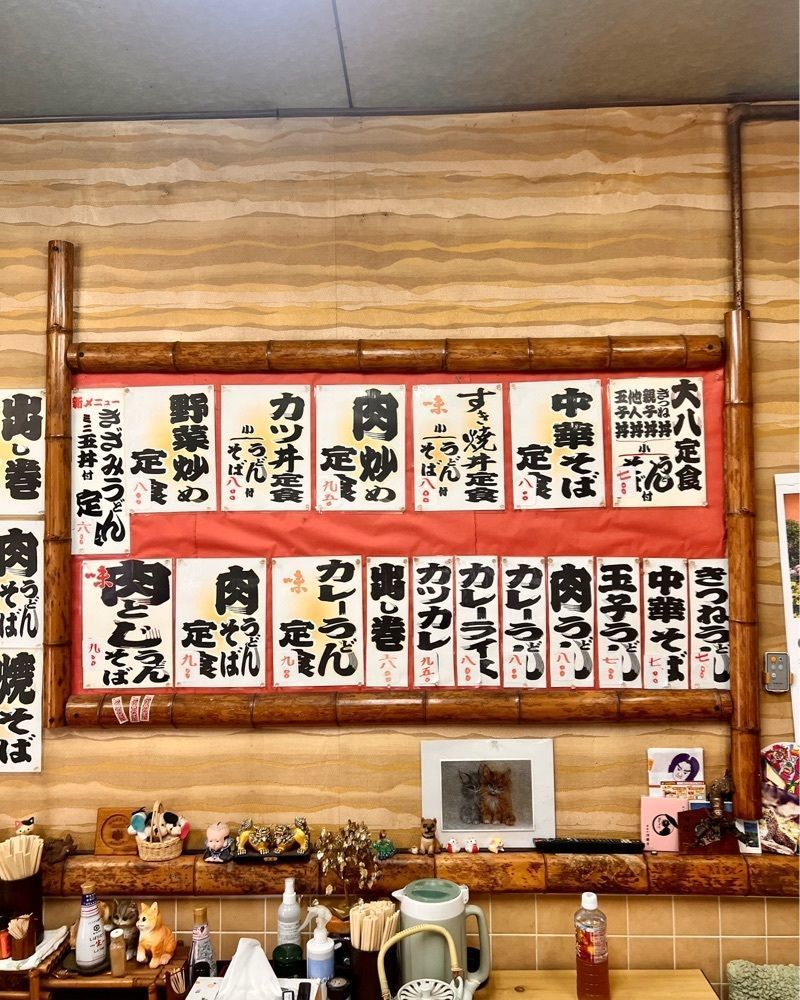 大八定食
きつね丼
親子丼
他人丼
玉子丼
小
うどん
そば
付
七〇〇
中華そば
定食
八〇〇
味
すき焼丼定食
小
うどん
そば
付
八〇〇
肉炒め
定食
九五〇
カツ丼定食
小
うどん
そば
付
八〇〇
野菜炒め
定食
八〇〇
新メニュー
きざみうどん
ミニ玉丼付
定食
六〇〇
きつねうどん
七〇〇
中華そば
七〇〇
玉子うどん
七〇〇
肉うどん
八〇〇
カレーうどん
八〇〇
カレーライス
八〇〇
カツカレー
九五〇
出し巻
六〇〇
味
カレーうどん
定食
九〇〇
肉
うどん
そば
定食
九〇〇
味
肉とじ
うどん
そば
九〇〇
出し巻
肉
うどん
そば
焼そば